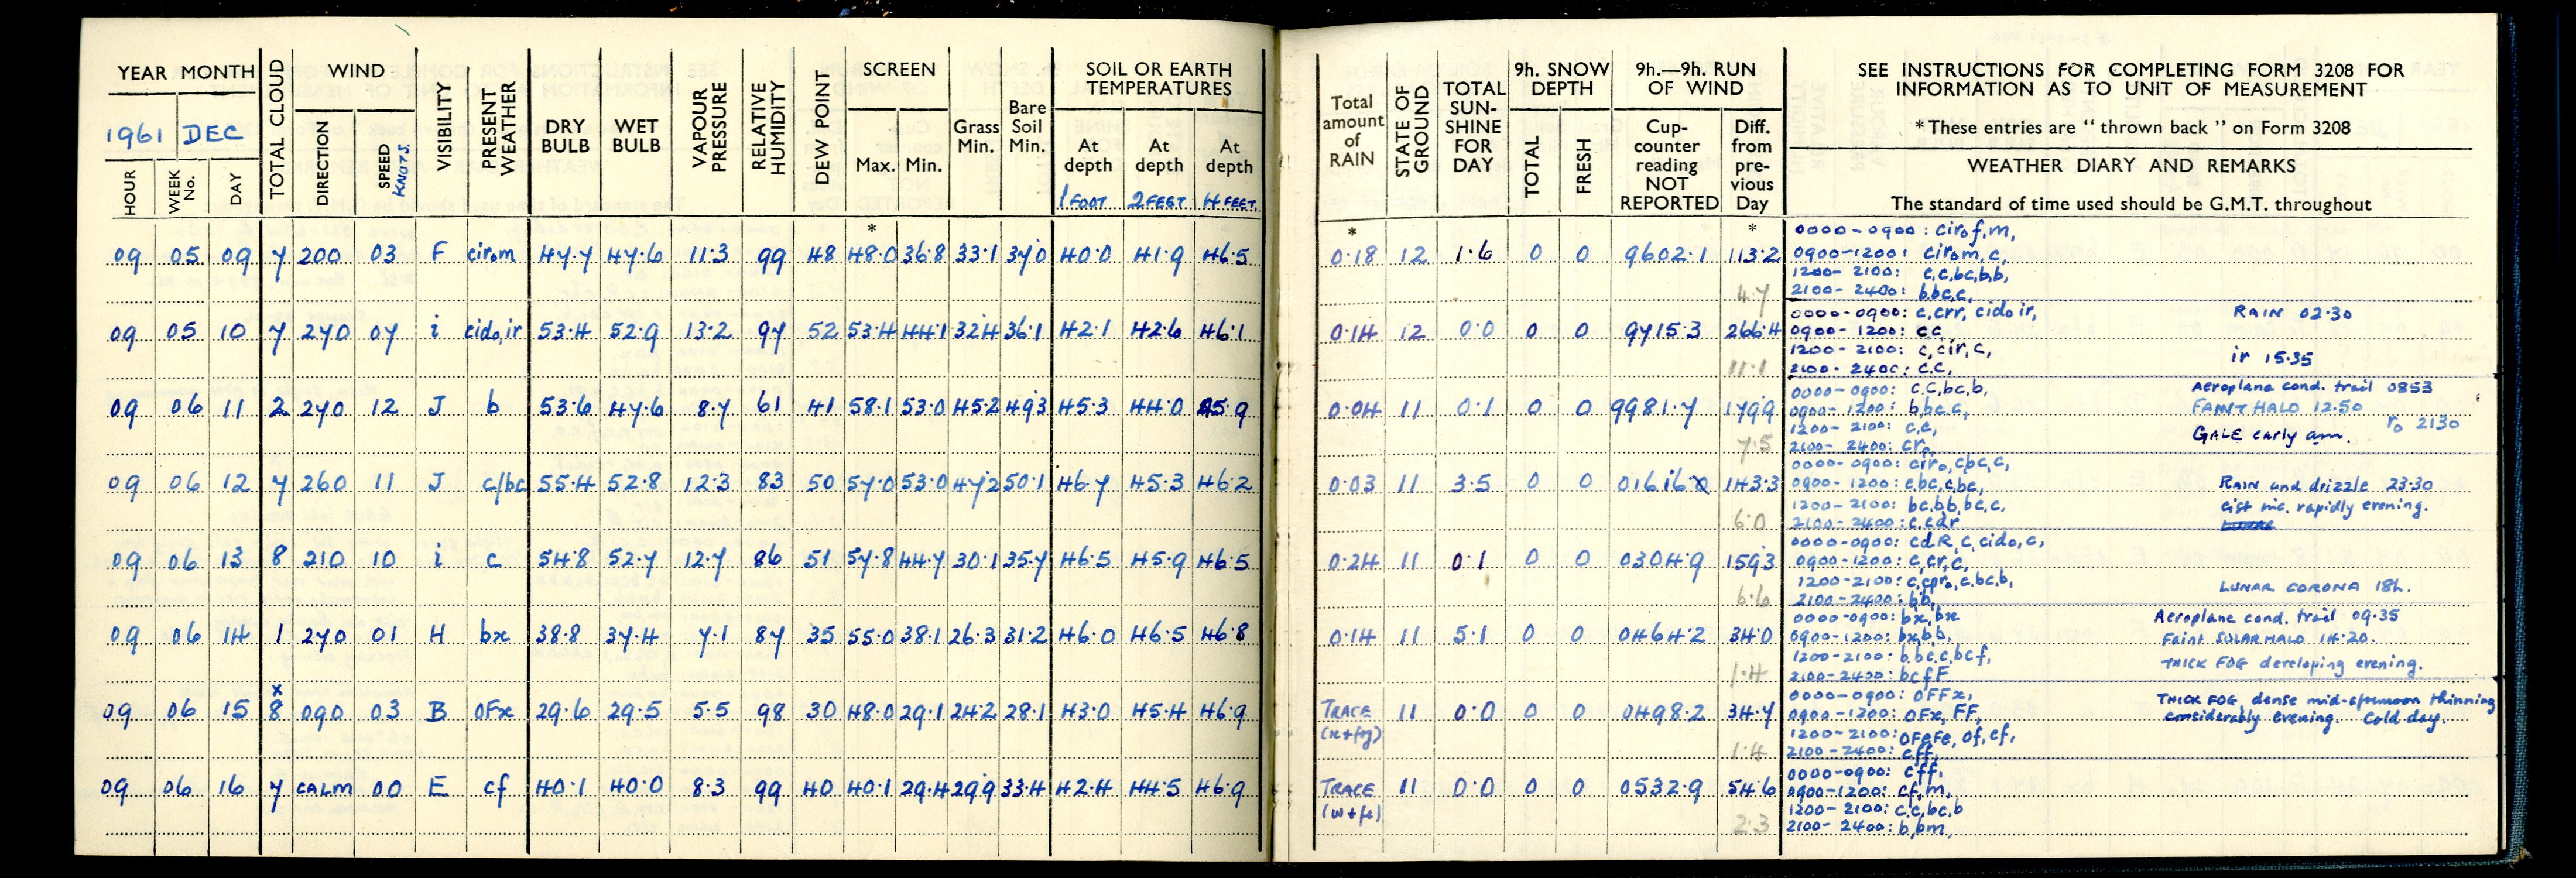 YEAR MONTH
1961 DEC
HOUR WEEK No. DAY
TOTAL CLOUD
WIND
DIRECTION SPEED KNOTS.
VISIBILITY
PRESENT WEATHER
DRY BULB
WET BULB
VAPOUR PRESSURE
RELATIVE HUMIDITY
DEW POINT
SCREEN
Max. Min.
Grass Min.
Bare Soil Min.
SOIL OR EARTH TEMPERATURES
At depth 1 FOOT At depth 2 FEET At depth 4 FEET.
Total amount of RAIN
STATE OF GROUND
TOTAL SUN-SHINE FOR DAY
9h. SNOW DEPTH
TOTAL FRESH
9h.—9h. RUN OF WIND
Cup-counter reading NOT REPORTED
Diff. from pre-vious Day
SEE INSTRUCTIONS FOR COMPLETING FORM 3208 FOR
INFORMATION AS TO UNIT OF MEASUREMENT
*These entries are “thrown back” on Form 3208
WEATHER DIARY AND REMARKS
The standard of time used should be G.M.T. throughout
* * *
09 05 09 7 200 03 F cirom 47.7 47.6 11.3 99 48 48.0 36.8 33.1 37.0 40.0 41.9 46.5 0.18 12 1.6 0 0 9602.1 113.2
4.7
0000-0900: cirof,m,
0900-1200: cirom,c,
1200-2100: c,c,bc,b,b,
2100-2400: bbc,c,
09 05 10 7 270 07 i cido,ir 53.4 52.9 13.2 97 52 53.4 44.1 32.4 36.1 42.1 42.6 46.1 0.14 12 0.0 0 0 9715.3 266.4
11.1
0000-0900: c,crr, cido,ir, RAIN 02.30
0900-1200: c,c
1200-2100: c,cir,c, ir 15.35
2100-2400: c,c,
09 06 11 2 270 12 J b 53.6 47.6 8.7 61 41 58.1 53.0 45.2 49.3 45.3 44.0 45.9 0.04 11 0.1 0 0 9981.7 179.9
7.5
0000-0900: c,c,bc,b, Aeroplane cond. trail 0853
0900-1200: b,bc,c, FAINT HALO 12.50
1200-2100: c,c, ro 2130
2100-2400: cro GALE early am.
09 06 12 7 260 11 J c/bc 55.4 52.8 12.3 83 50 57.0 53.0 47.2 50.1 46.7 45.3 46.2 0.03 11 3.5 0 0 0161.6 143.3
6.0
0000-0900: cirro,cbc,c,
0900-1200: cbc,c,bc, RAIN and drizzle 23.30
1200-2100: bc,b,b,bc,c, cist inc. rapidly evening.
2100-2400: c,cdr
09 06 13 8 210 10 i c 54.8 52.7 12.7 86 51 57.8 44.7 30.1 35.7 46.5 45.9 46.5 0.24 11 0.1 0 0 0304.9 159.3
6.6
0000-0900: cdR,c,cido,c,
0900-1200: c,cr,c,
1200-2100: c,cpro,c,bc,b, LUNAR CORONA 18h.
2100-2400: b,b,
09 06 14 1 270 01 H bx 38.8 37.4 7.1 87 35 55.0 38.1 26.3 31.2 46.0 46.5 46.8 0.14 11 5.1 0 0 0464.2 34.0
1.4
0000-0900: bx,bx Aeroplane cond. trail 09.35
0900-1200: bx,b,b, Faint SOLAR HALO 14.20.
1200-2100: b,bc,c,bcf, THICK FOG developing evening.
2100-2400: bcfF
x
09 06 15 8 090 03 B OFx 29.6 29.5 5.5 98 30 48.0 29.1 24.2 28.1 43.0 45.4 46.9 TRACE 11 0.0 0 0 0498.2 34.7
(x+fog)
1.4
0000-0900: OFFx, THICK FOG, dense mid-afternoon thinning
0900-1200: OFx, FF, considerably evening. Cold day.
1200-2100: OFeFe, Of, cf,
2100-2400: cff,
09 06 16 7 CALM 00 E cf 40.1 40.0 8.3 99 40 40.1 29.4 29.9 33.4 42.4 44.5 46.9 TRACE 11 0.0 0 0 0532.9 54.6
(w+fe)
2.3
0000-0900: cff,
0900-1200: cf,m,
1200-2100: c,c,bc,b
2100-2400: b,bm,